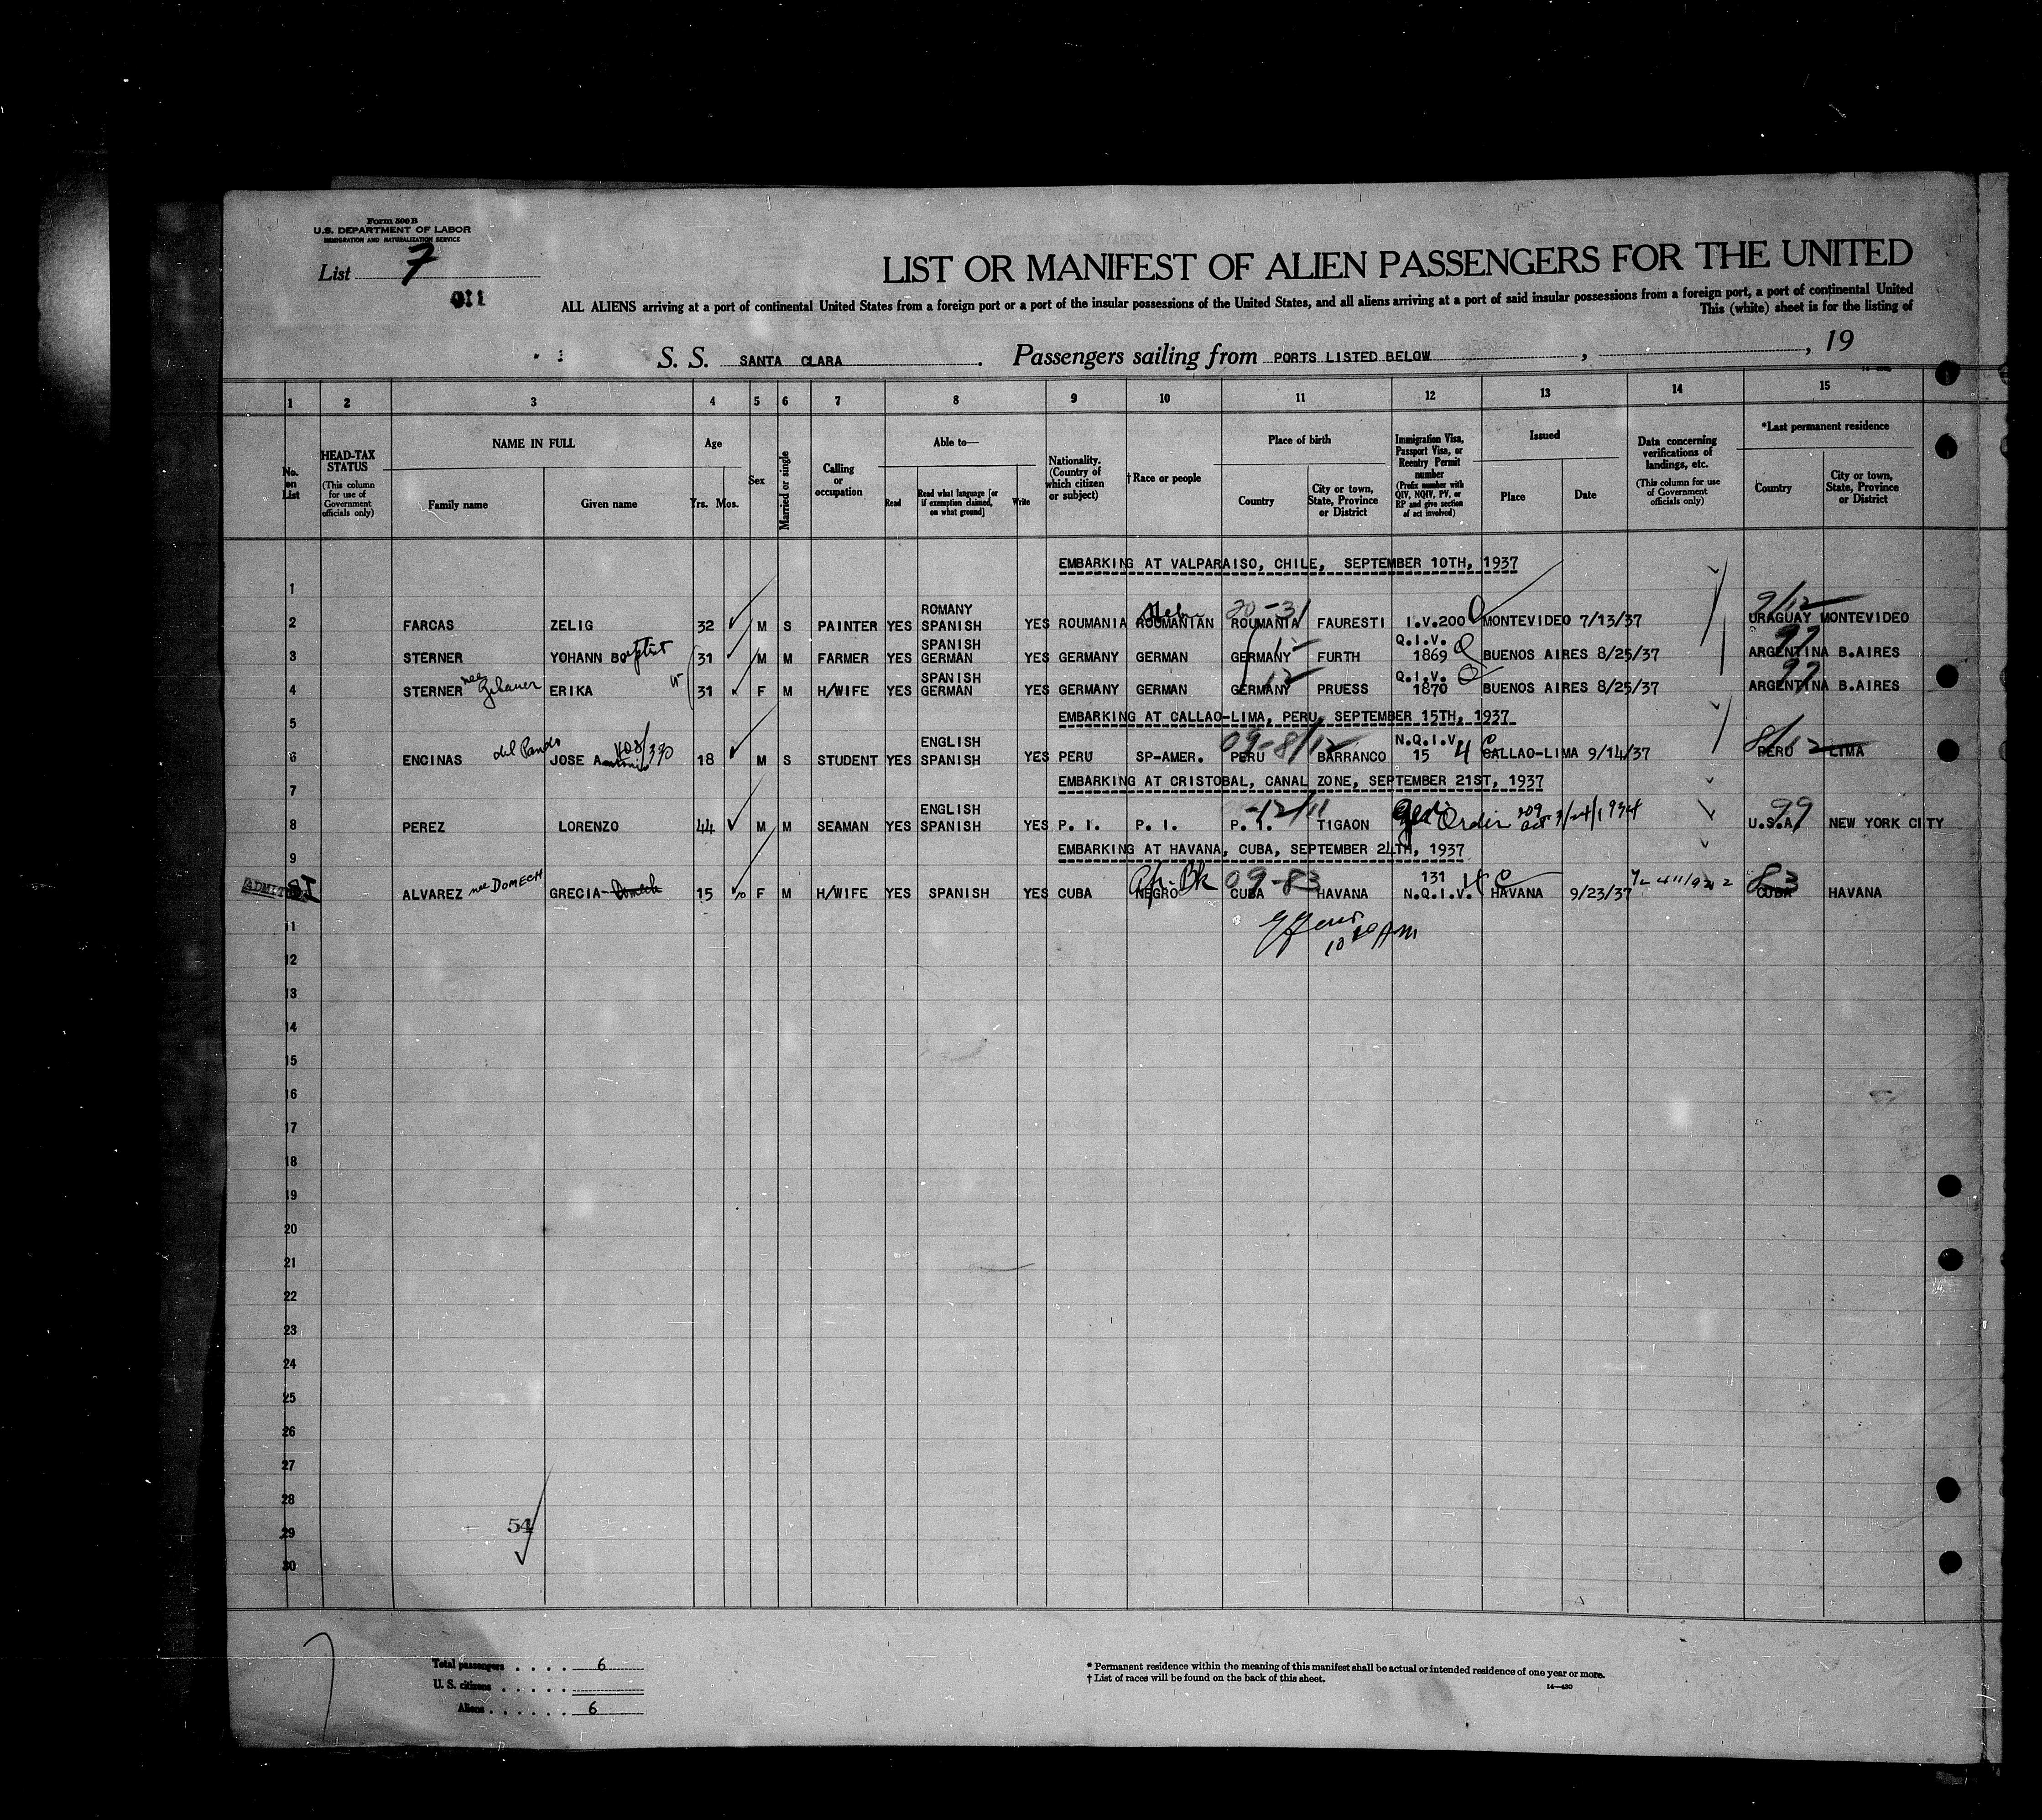 Form 500 B
U.S. DEPARTMENT OF LABOR
IMMIGRATION AND NATURALIZATION SERVICE
List 7
011
LIST OR MANIFEST OF ALIEN PASSENGERS FOR THE UNITED
ALL ALIENS arriving at a port of continental United States from a foreign port or a port of the insular possessions of the United States, and all aliens arriving at a port of said insular possessions from a foreign port, a port of continental United
This (white) sheet is for the listing of
S. S. SANTA CLARA. Passengers sailing from PORTS LISTED BELOW, , 19
1 2 3 4 5 6 7 8 9 10 11 12 13 14 15
No. on List
HEAD-TAX STATUS (This column for use of Government officials only)
NAME IN FULL Family name Given name
Age Yrs. Mos.
Sex
Married or single
Calling or occupation
Able to— Read Read what language [or if exemption claimed, on what ground] Write
Nationality. (Country of which citizen or subject)
†Race or people
Place of birth Country City or town, State, Province or District
Immigration Visa, Passport Visa, or Reentry Permit number (Prefix number with QIV, NQIV, PV, or RP and give section of act involved)
Issued Place Date
Data concerning verifications of landings, etc. (This column for use of Government officials only)
*Last permanent residence Country City or town, State, Province or District
EMBARKING AT VALPARAISO, CHILE, SEPTEMBER 10TH, 1937
1
2 FARCAS ZELIG 32 M S PAINTER YES ROMANY SPANISH YES ROUMANIA ROUMANIAN Hebr 20-31 ROUMANIA FAURESTI I.V.200 MONTEVIDEO 7/13/37 9/12 URAGUAY MONTEVIDEO
3 STERNER YOHANN Baptist 31 M M FARMER YES SPANISH GERMAN YES GERMANY GERMAN GERMANY FURTH Q.I.V. 1869 BUENOS AIRES 8/25/37 97 ARGENTINA B.AIRES
4 STERNER nee Gebauer ERIKA 31 F M H/WIFE YES SPANISH GERMAN YES GERMANY GERMAN GERMANY PRUESS Q.I.V. 1870 BUENOS AIRES 8/25/37 97 ARGENTINA B.AIRES
5 EMBARKING AT CALLAO-LIMA, PERU, SEPTEMBER 15TH, 1937
6 ENCINAS del Pando JOSE Antonio 408/390 18 M S STUDENT YES ENGLISH SPANISH YES PERU SP-AMER. 09-8/12 PERU BARRANCO N.Q.I.V. 15 4 CALLAO-LIMA 9/14/37 8/12 PERU LIMA
7 EMBARKING AT CRISTOBAL, CANAL ZONE, SEPTEMBER 21ST, 1937
8 PEREZ LORENZO 44 M M SEAMAN YES ENGLISH SPANISH YES P. I. P. I. -12/11 P. I. TIGAON Order 209 act 3/24/1934 99 U.S.A. NEW YORK CITY
9 EMBARKING AT HAVANA, CUBA, SEPTEMBER 24TH, 1937
ADMITTED SI ALVAREZ nee DOMECH GRECIA Domech 15 F M H/WIFE YES SPANISH YES CUBA NEGRO Afr. Bk 09-83 CUBA HAVANA 131 N.Q.I.V. HAVANA 9/23/37 83 CUBA HAVANA
11
12
13
14
15
16
17
18
19
20
21
22
23
24
25
26
27
28
29
30
54
Total passengers . . . . 6
U. S. citizens . . . . . .
Aliens . . . . . . 6
* Permanent residence within the meaning of this manifest shall be actual or intended residence of one year or more.
† List of races will be found on the back of this sheet.
14—430